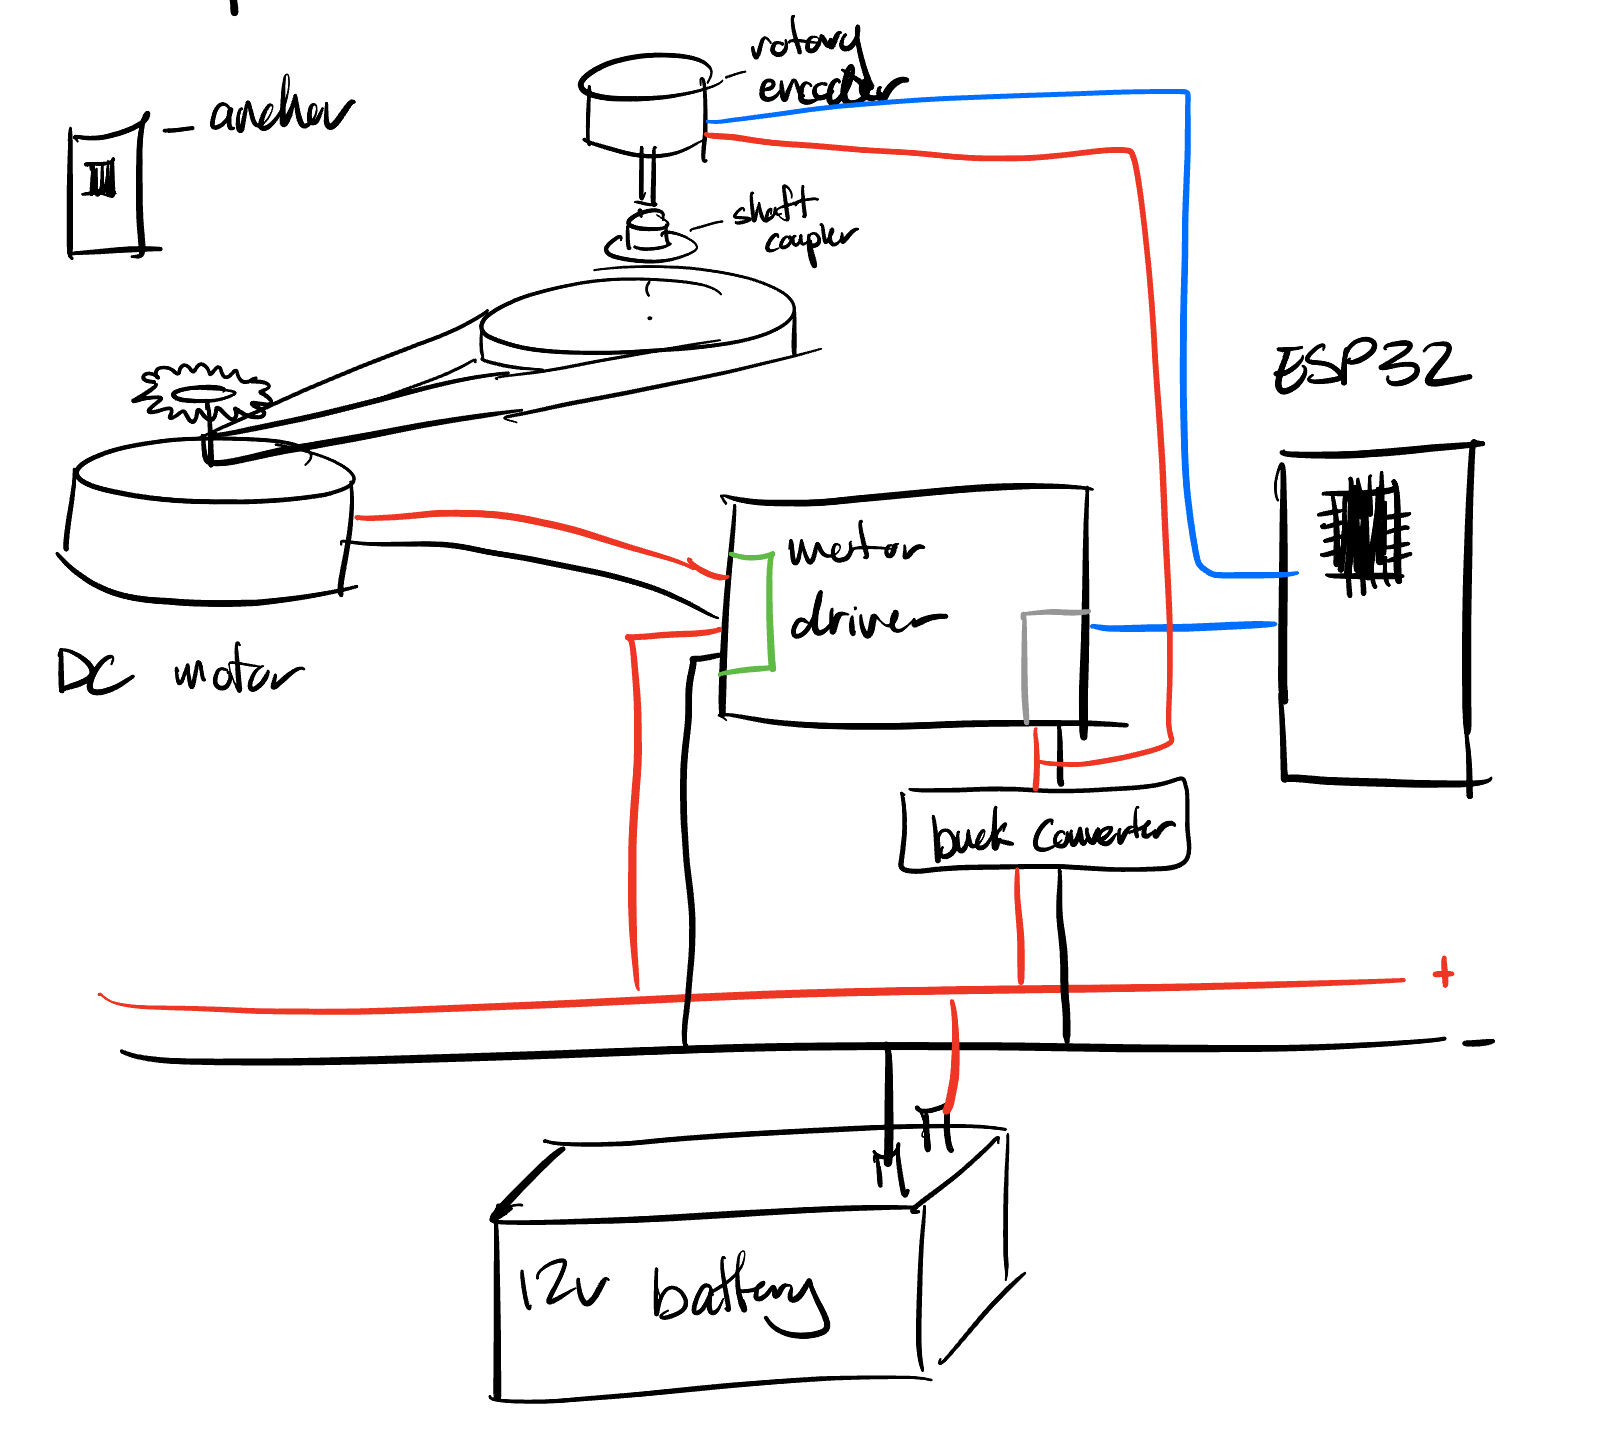 rotary
encoder
anchor
shaft
coupler
ESP32
motor
driver
DC motor
buck converter
+
-
12v battery